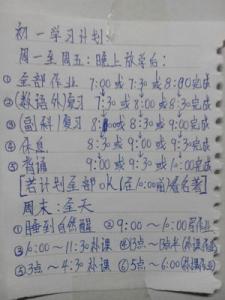 初一学习计划
周一至周五:晚上放学后:
①全部作业 7:00或7:30或8:00完成
②(数语外)复习 7:30或8:00或8:30完成
③(副科)复习 8:00或8:30或9:00完成
④休息 8:30或9:00或9:30完成
⑤背诵 9:00或9:30或10:00完成
[若计划全部ok(在10:00前)
周末:全天
①睡到自然醒 ②9:00~10:00写作业
③10:00~11:30补课 ④13点~
⑤3点~4:30补课 ⑥5点~6:00